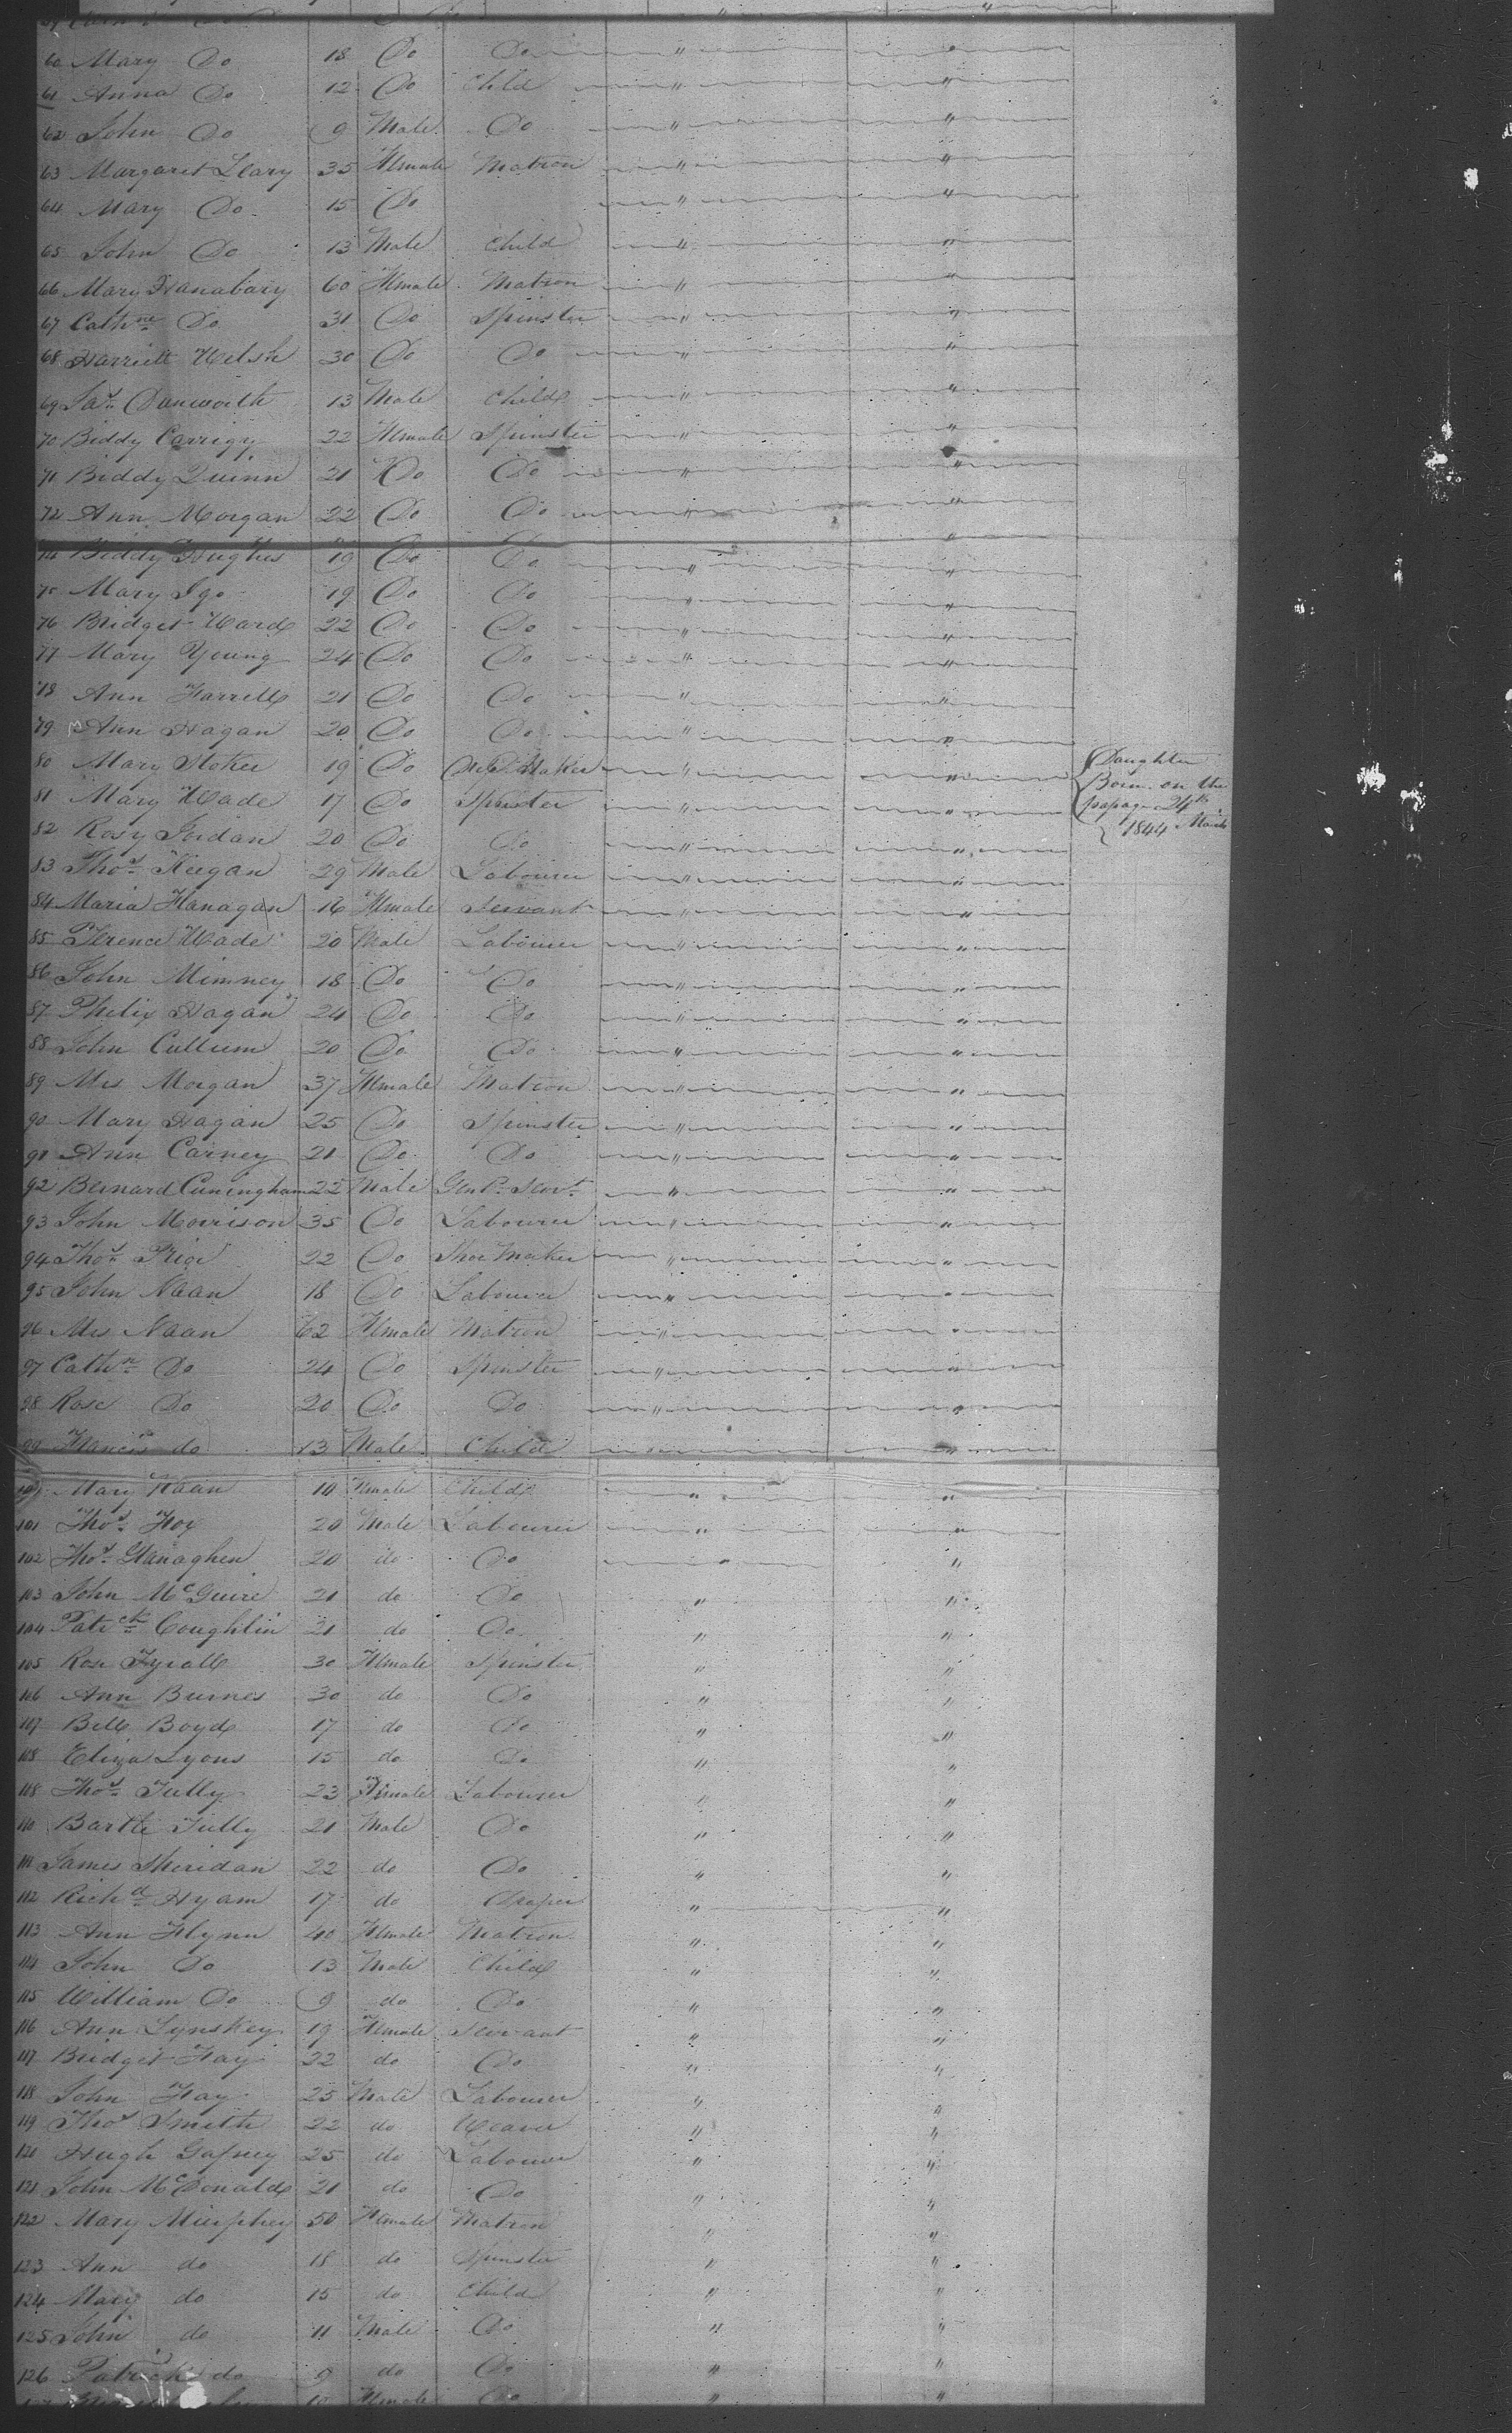 60 Mary Do 18 Do Do " "
61 Anna Do 12 Do Child " "
62 John Do 9 Male Do " "
63 Margaret Leary 35 Female Matron " "
64 Mary Do 15 Do " "
65 John Do 13 Male Child " "
66 Mary Hanabury 60 Female Matron " "
67 Cathne Do 31 Do Spinster " "
68 Harriett Welsh 30 Do Do " "
69 Jas Danworth 13 Male Child " "
70 Biddy Corrigy 22 Female Spinster " "
71 Biddy Quinn 21 Do Do " "
72 Ann Morgan 22 Do Do " "
74 Biddy Hughes 19 Do Do " "
75 Mary Igo 19 Do Do " "
76 Bridget Ward 22 Do Do " "
77 Mary Young 24 Do Do " "
78 Ann Farrell 21 Do Do " "
79 Ann Hagan 20 Do Do " "
80 Mary Stoker 19 Do Maker " " Daughter
81 Mary Wade 17 Do Spinster " " Born on the
passage 24th
82 Rosy Jordan 20 Do Do " " 1844 March
83 Thos Keegan 29 Male Labourer " "
84 Maria Flanagan 16 Female Servant " "
85 Terence Wade 20 Male Labourer " "
86 John Mimney 18 Do Do " "
87 Phelix Hagan 24 Do Do " "
88 John Cullum 20 Do Do " "
89 Mrs Morgan 37 Female Matron " "
90 Mary Hagan 25 Do Spinster " "
91 Ann Carney 21 Do Do " "
92 Bernard Cuningham 22 Male Genl Servt " "
93 John Morrison 35 Do Labourer " "
94 Thos Prior 22 Do Shoe Maker " "
95 John Naan 18 Do Labourer " "
96 Mrs Naan 62 Female Matron " "
97 Cathn Do 24 Do Spinster " "
98 Rose Do 20 Do Do " "
99 Francis do 13 Male Child " "
100 Mary Naan 10 Female Child " "
101 Thos Foy 20 Male Labourer " "
102 Thos Glanaghen 20 do Do " "
103 John McGuire 21 do Do " "
104 Patrck Coughlin 21 do Do " "
105 Rose Tyrall 30 Female Spinster " "
106 Ann Burnes 30 do Do " "
107 Bell Boyd 17 do Do " "
108 Eliza Lyons 15 do Do " "
118 Thos Tully 23 Female Labourer " "
110 Bartle Tully 21 Male Do " "
111 James Sheridan 22 do Do " "
112 Richd Hyam 17 do Draper " "
113 Ann Flynn 40 Female Matron " "
114 John Do 13 Male Child " "
115 William Do 9 do Do " "
116 Ann Lynskey 19 Female Servant " "
117 Bridget Fay 22 do Do " "
118 John Fay 25 Male Labourer " "
119 Thos Smith 22 do Weaver " "
120 Hugh Gafney 25 do Labourer " "
121 John McDonald 21 do Do " "
122 Mary Murphey 50 Female Matron " "
123 Ann do 18 do Spinster " "
124 Mary do 15 do Child " "
125 John do 11 Male Do " "
126 Patrick do 9 do Do " "
10 Female Do " "